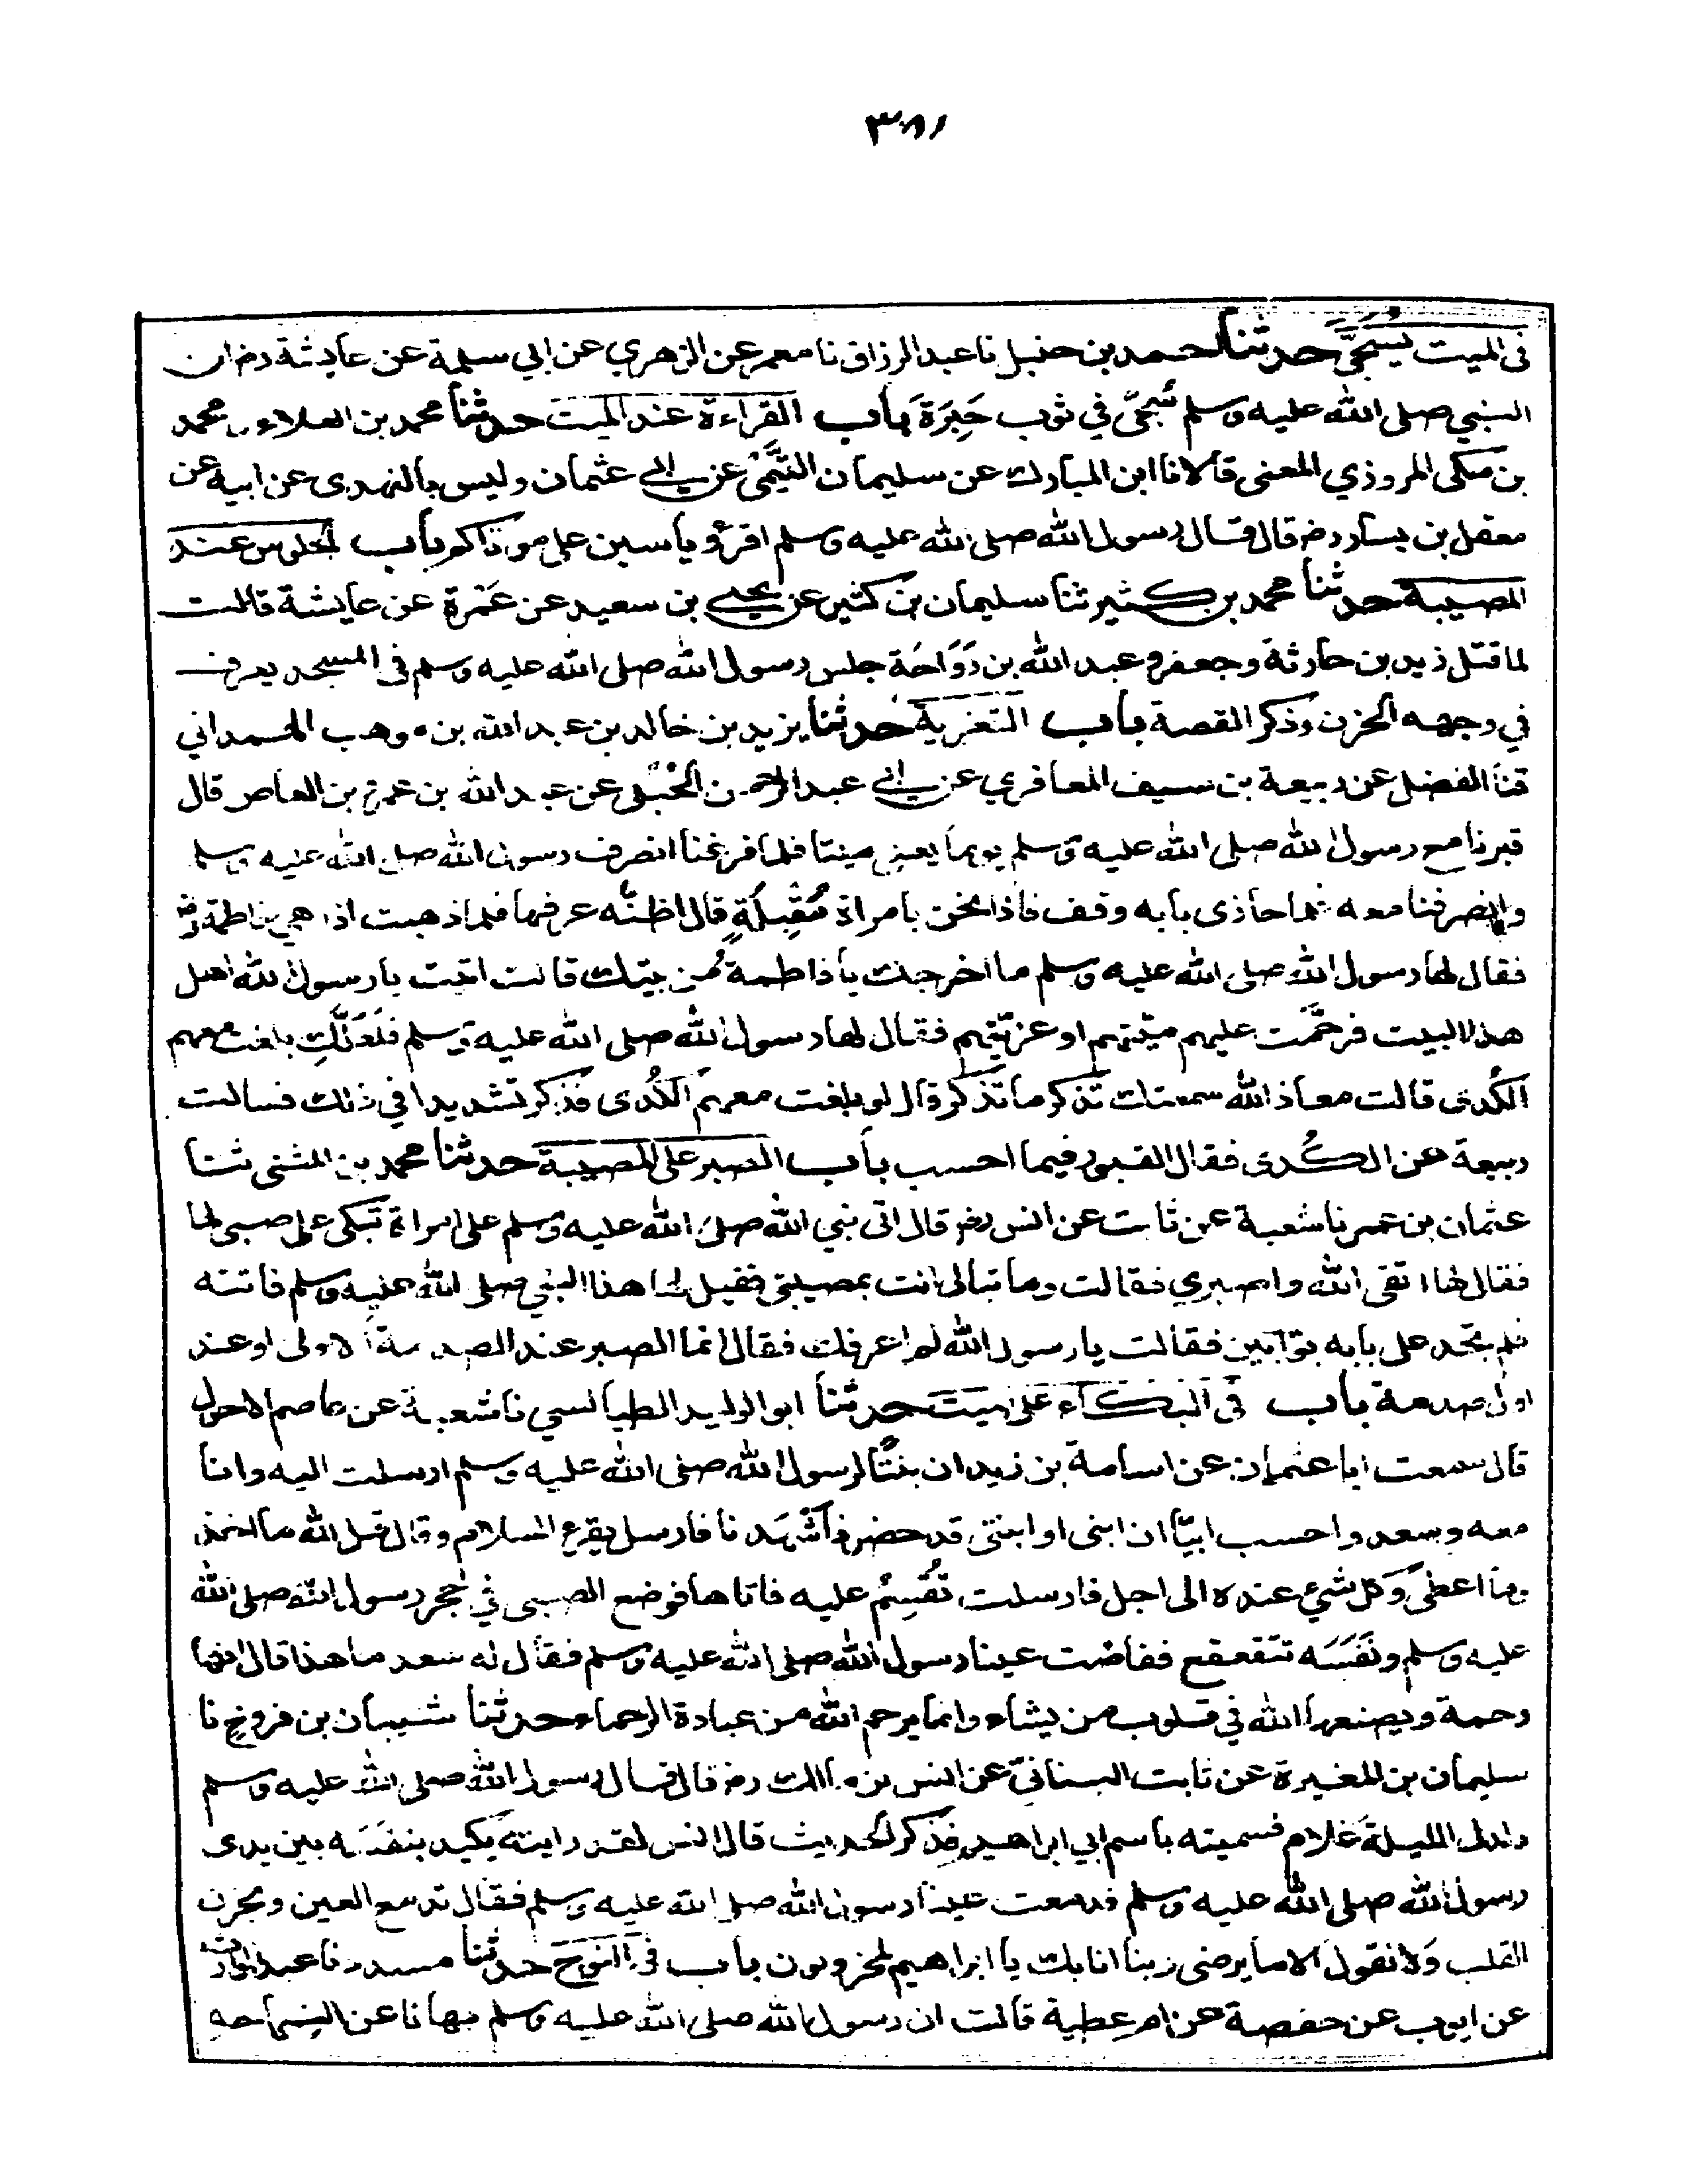 ٣٨١
في الميت يُسَجَّى حدثنا احمد بن حنبل نا عبد الرزاق نا معمر عن الزهري عن ابي سلمة عن عايشة رض ان
النبي صلى الله عليه وسلم سُجّي في ثوب حَبِرَة باب القراءة عند الميت حدثنا محمد بن العلاء و محمد
بن مكى المروزي المعنى قالا نا ابن المبارك عن سليمان التَّيْمَى عن ابى عثمان وليس بالنهدى عن ابيه عن
معقل بن يسار رض قال قال رسول الله صلى الله عليه وسلم اقرؤ ياسين على موتاكم باب الجلوس عند
المصيبة حدثنا محمد بن كثير ثنا سليمان بن كثير عن يحيى بن سعيد عن عَمْرة عن عايشة قالت
لما قتل زيد بن حارثة وجعفر و عبد الله بن رَوَاحَة جلس رسول الله صلى الله عليه وسلم فى المسجد يعرف
في وجهه الحزن وذكر القصة باب التعزية حدثنا يزيد بن خالد بن عبد الله بن موهب الهمداني
ثنا المفضل عن ربيعة بن سيف المعافري عن ابى عبد الرحمن الحُبُلى عن عبد الله بن عمرو بن العاص قال
قبرنا مع رسول الله صلى الله عليه وسلم يوما يعنى ميتا فلما فرغنا انصرف رسول الله صلى الله عليه وسلم
وانصرفنا معه فلما حاذى بابه وقف فاذا نحن بامراة مُقْبِلَةٍ قال اظنّه عرفها فلما ذهبت اذا هي فاطمة رض
فقال لها رسول الله صلى الله عليه وسلم ما اخرجك يا فاطمة من بيتك قالت اتيت يا رسول الله اهل
هذا البيت فرحّمت عليهم ميّتهم او عزيتهم فقال لها رسول الله صلى الله عليه وسلم فلَعَلَّكِ بلغت معهم
الكُدى قالت معاذ الله سمعتك تذكر ما تذكر قال لو بلغت معهم الكُدى فذكر تشديدا في ذلك فسالت
ربيعة عن الكُدى فقال القبور فيما احسب باب الصبر على المصيبة حدثنا محمد بن المثنى ثنا
عثمان بن عمر نا شعبة عن ثابت عن انس رض قال اتى نبي الله صلى الله عليه وسلم على امراة تبكى على صبى لها
فقال لها اتقى الله واصبري فقالت وما تبالى انت بمصيبتى فقيل لها هذا النبي صلى الله عليه وسلم فاتته
فلم تجد على بابه بوّابين فقالت يا رسول الله لم اعرفك فقال انما الصبر عند الصدمة الاولى او عند
اول صدمة باب فى البكاء على الميت حدثنا ابو الوليد الطيالسي نا شعبة عن عاصم الاحول
قال سمعت ابا عثمان عن اسامة بن زيد ان بنتًا لرسول الله صلى الله عليه وسلم ارسلت اليه وانا
معه وسعد واحسب ابيّا ان ابنى او ابنتى قد حضر فاشهَد نا فارسل يقرع السلام وقال قل لله ما اخذ
وما اعطى وكل شيء عنده الى اجل فارسلت تُقْسِمُ عليه فاتاها فوضع الصبى في حجر رسول الله صلى الله
عليه وسلم ونَفَسَه تتقعقع ففاضت عينا رسول الله صلى الله عليه وسلم فقال له سعد ما هذا قال انها
رحمة ويضعها الله في قلوب من يشاء وانما يرحم الله من عبادة الرحماء حدثنا شيبان بن فروخ نا
سليمان بن المغيرة عن ثابت البنانيّ عن انس بن مالك رض قال قال رسول الله صلى الله عليه وسلم
ولد لى الليلة غلام فسميته باسم ابي ابراهيم فذكر الحديث قال انس لقد رايته يكيد بنفسه بين يدى
رسول الله صلى الله عليه وسلم فدمعت عينا رسول الله صلى الله عليه وسلم فقال تدمع العين ويحزن
القلب ولا نقول الا ما يرضى ربنا انا بك يا ابراهيم لمحزونون باب في النوح حدثنا مسدد نا عبد الوارث
عن ايوب عن حفصة عن ام عطية قالت ان رسول الله صلى الله عليه وسلم نهانا عن النياحه